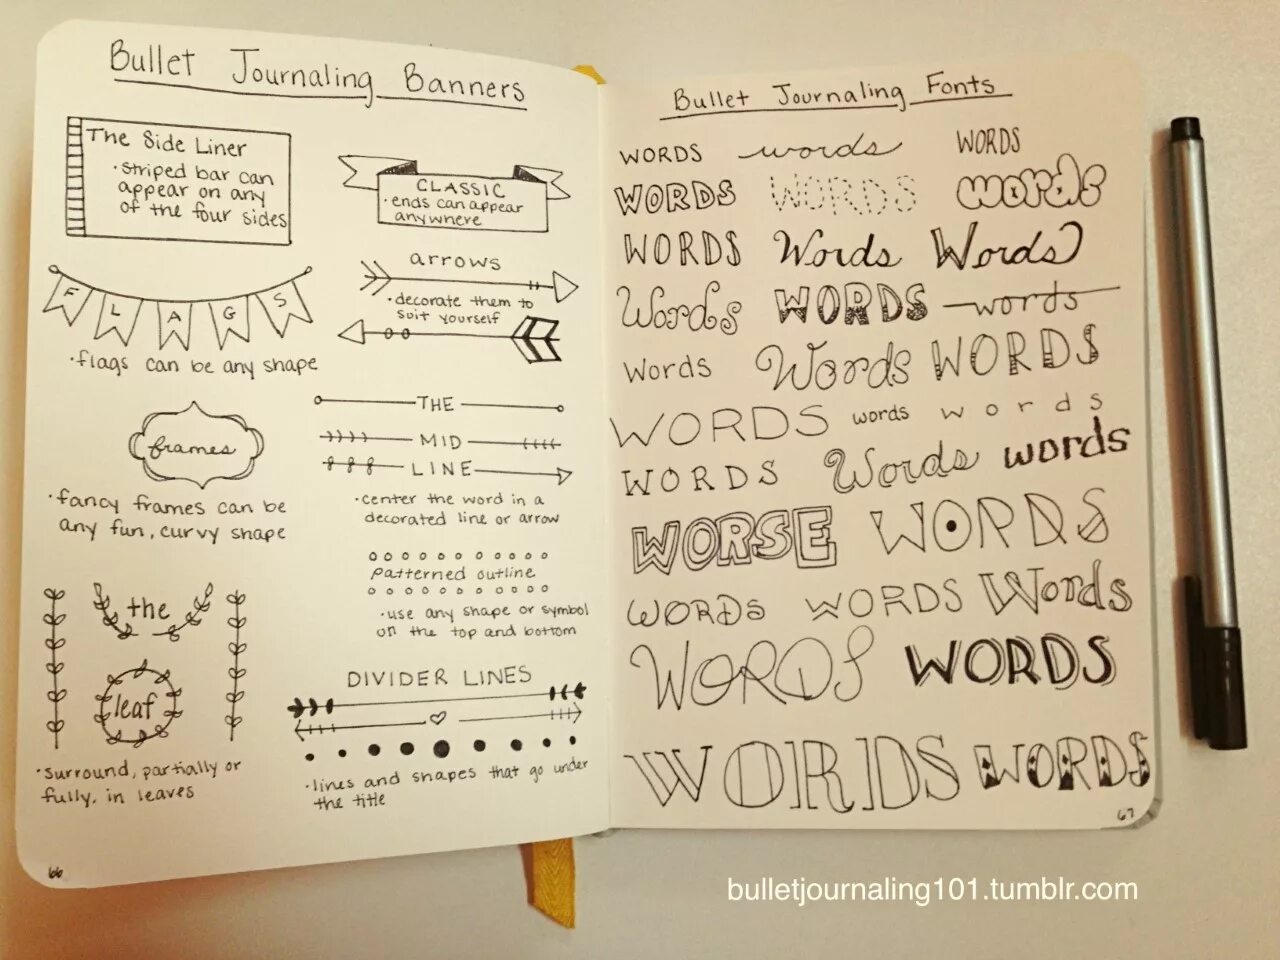 Bullet Journaling Banners
The Side Liner
·striped bar can
appear on any
of the four sides
CLASSIC
·ends can appear
anywhere
FLAGS
·flags can be any shape
arrows
·decorate them to
suit yourself
frames
·fancy frames can be
any fun, curvy shape
THE
MID
LINE
·center the word in a
decorated line or arrow
patterned outline
·use any shape or symbol
on the top and bottom
the
leaf
·surround, partially or
fully, in leaves
DIVIDER LINES
·lines and shapes that go under
the title
66
Bullet Journaling Fonts
WORDS words WORDS
WORDS WORDS words
WORDS Words Words
Words WORDS words
Words Words WORDS
WORDS words words
WORDS Words words
WORSE WORDS
WORDS WORDS Words
WORDS WORDS
WORDS WORDS
67
bulletjournaling101.tumblr.com